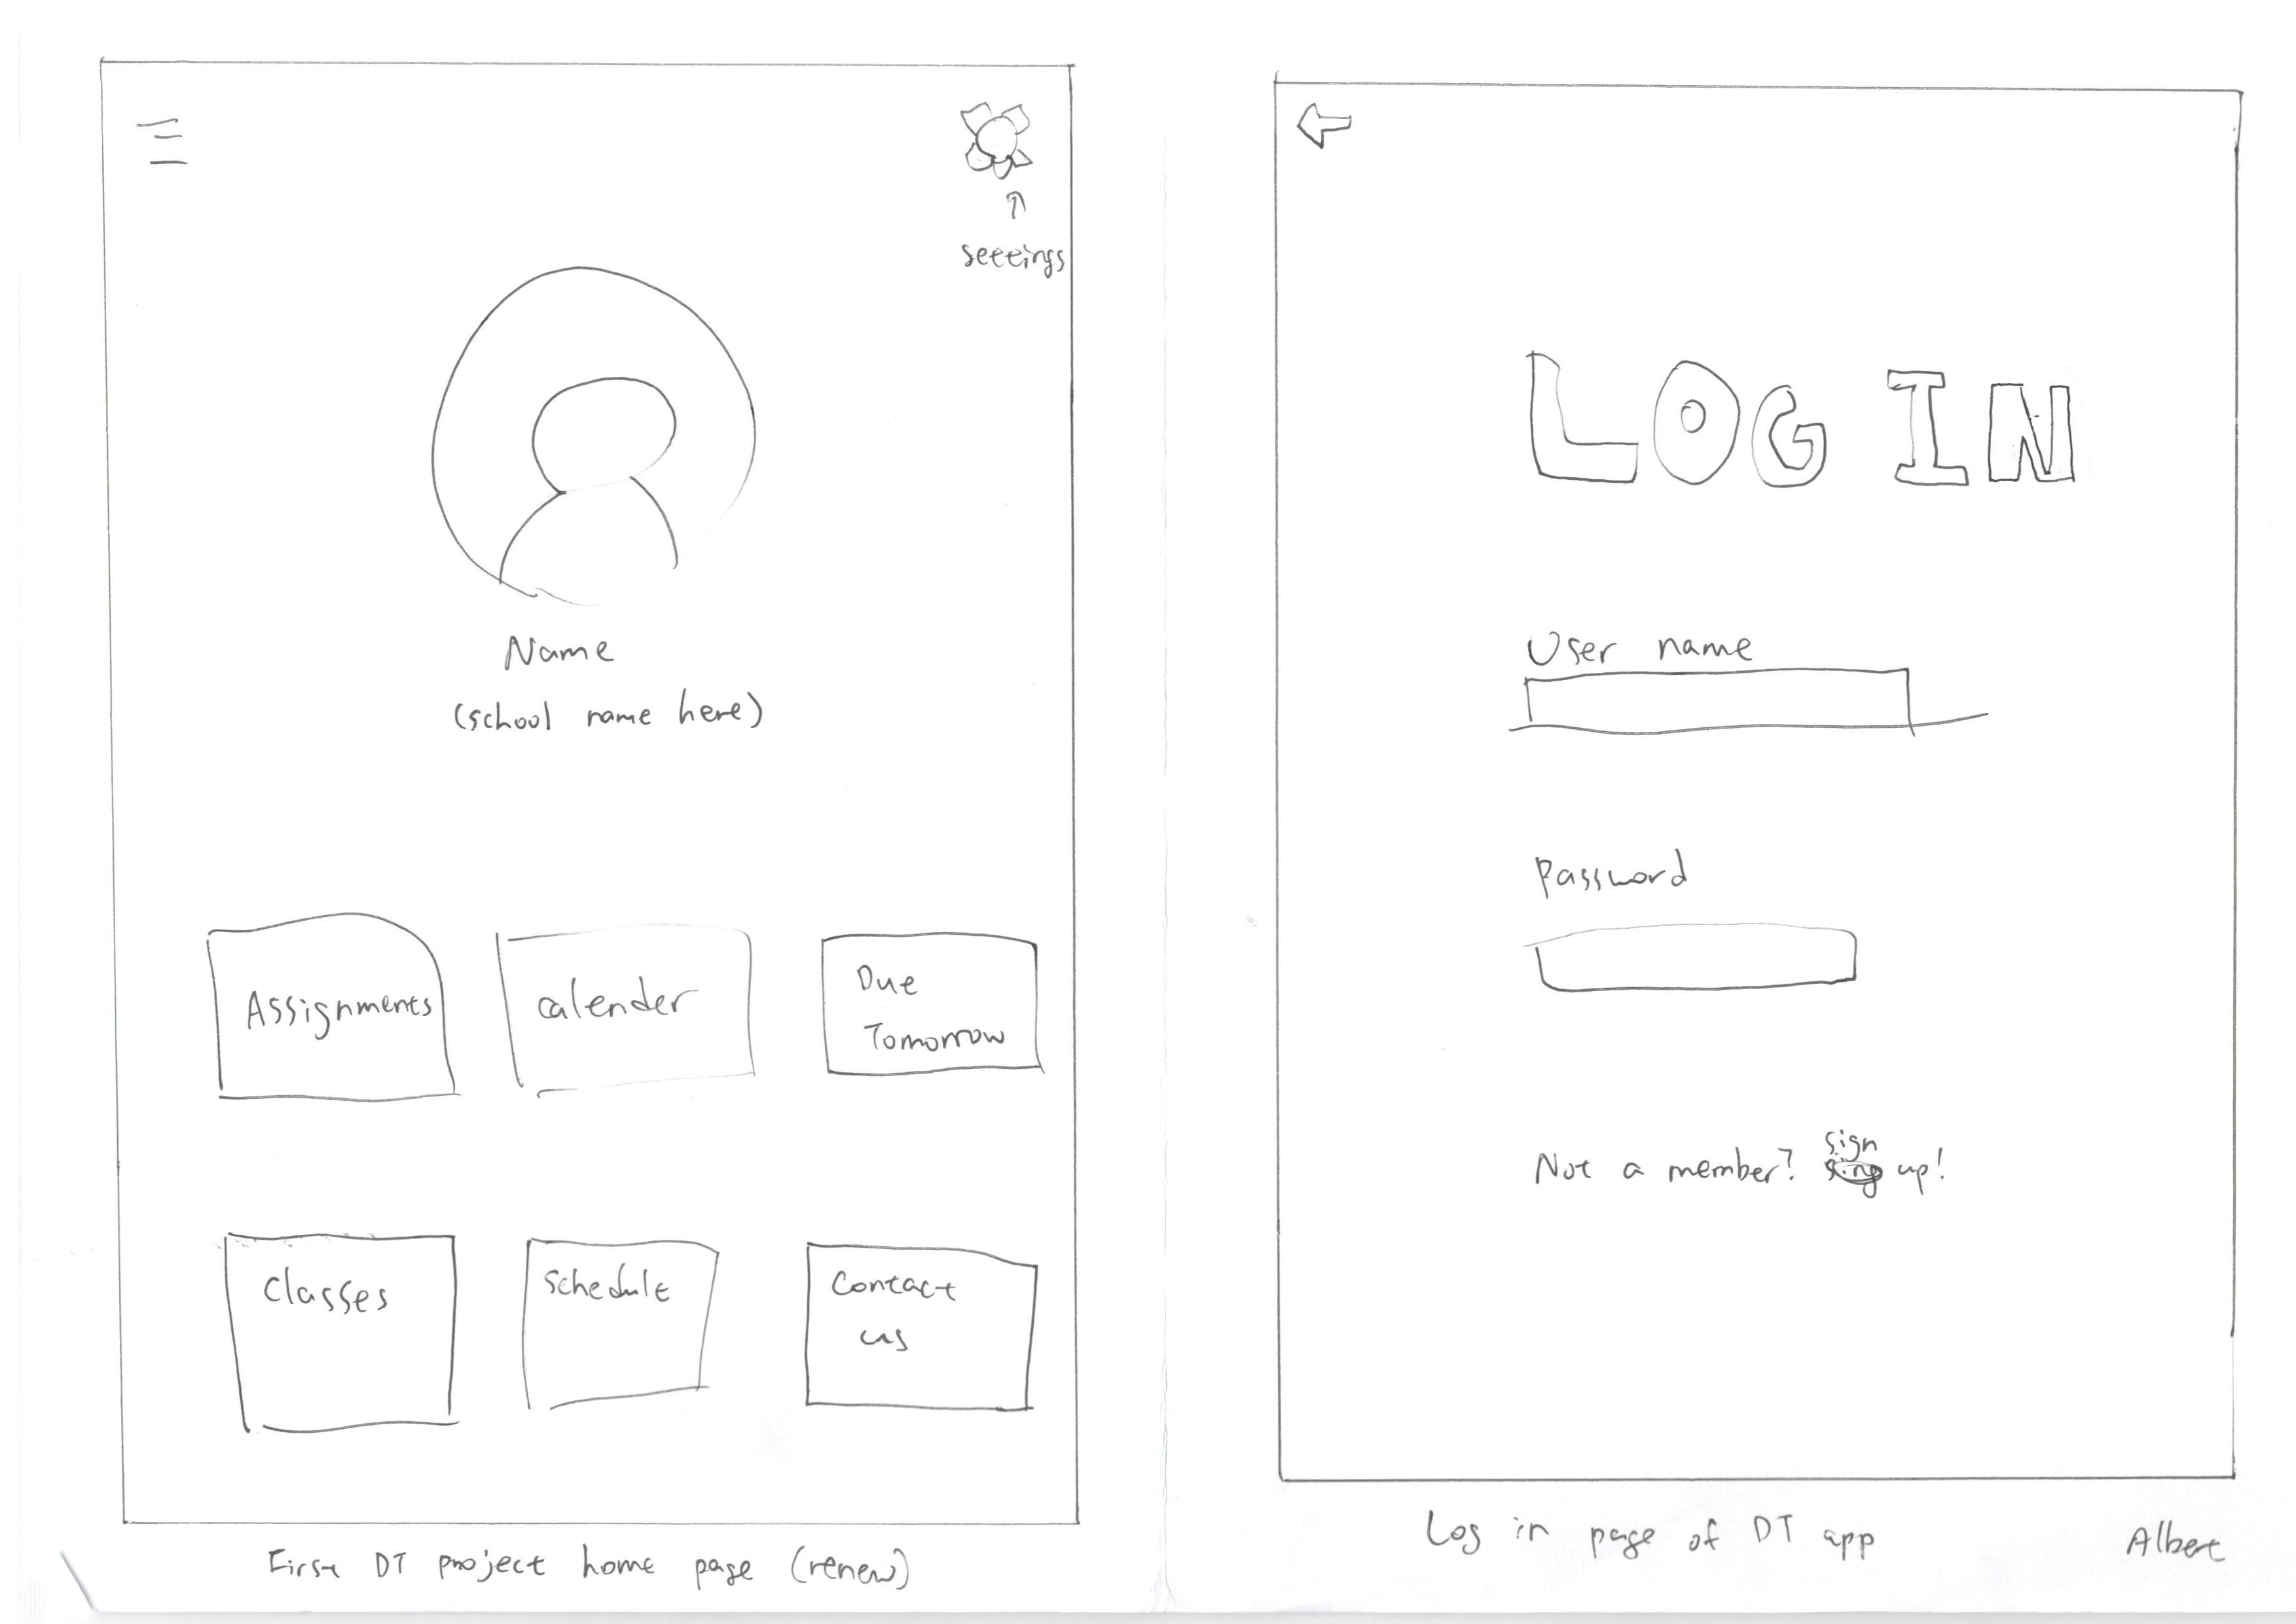 seetings
Name
(school name here)
Assignments
calender
Due
Tomorrow
Classes
Schedule
Contact
us
First DT project home page (renew)
LOG IN
User name
Password
Not a member? sign up!
Log in page of DT app
Albert